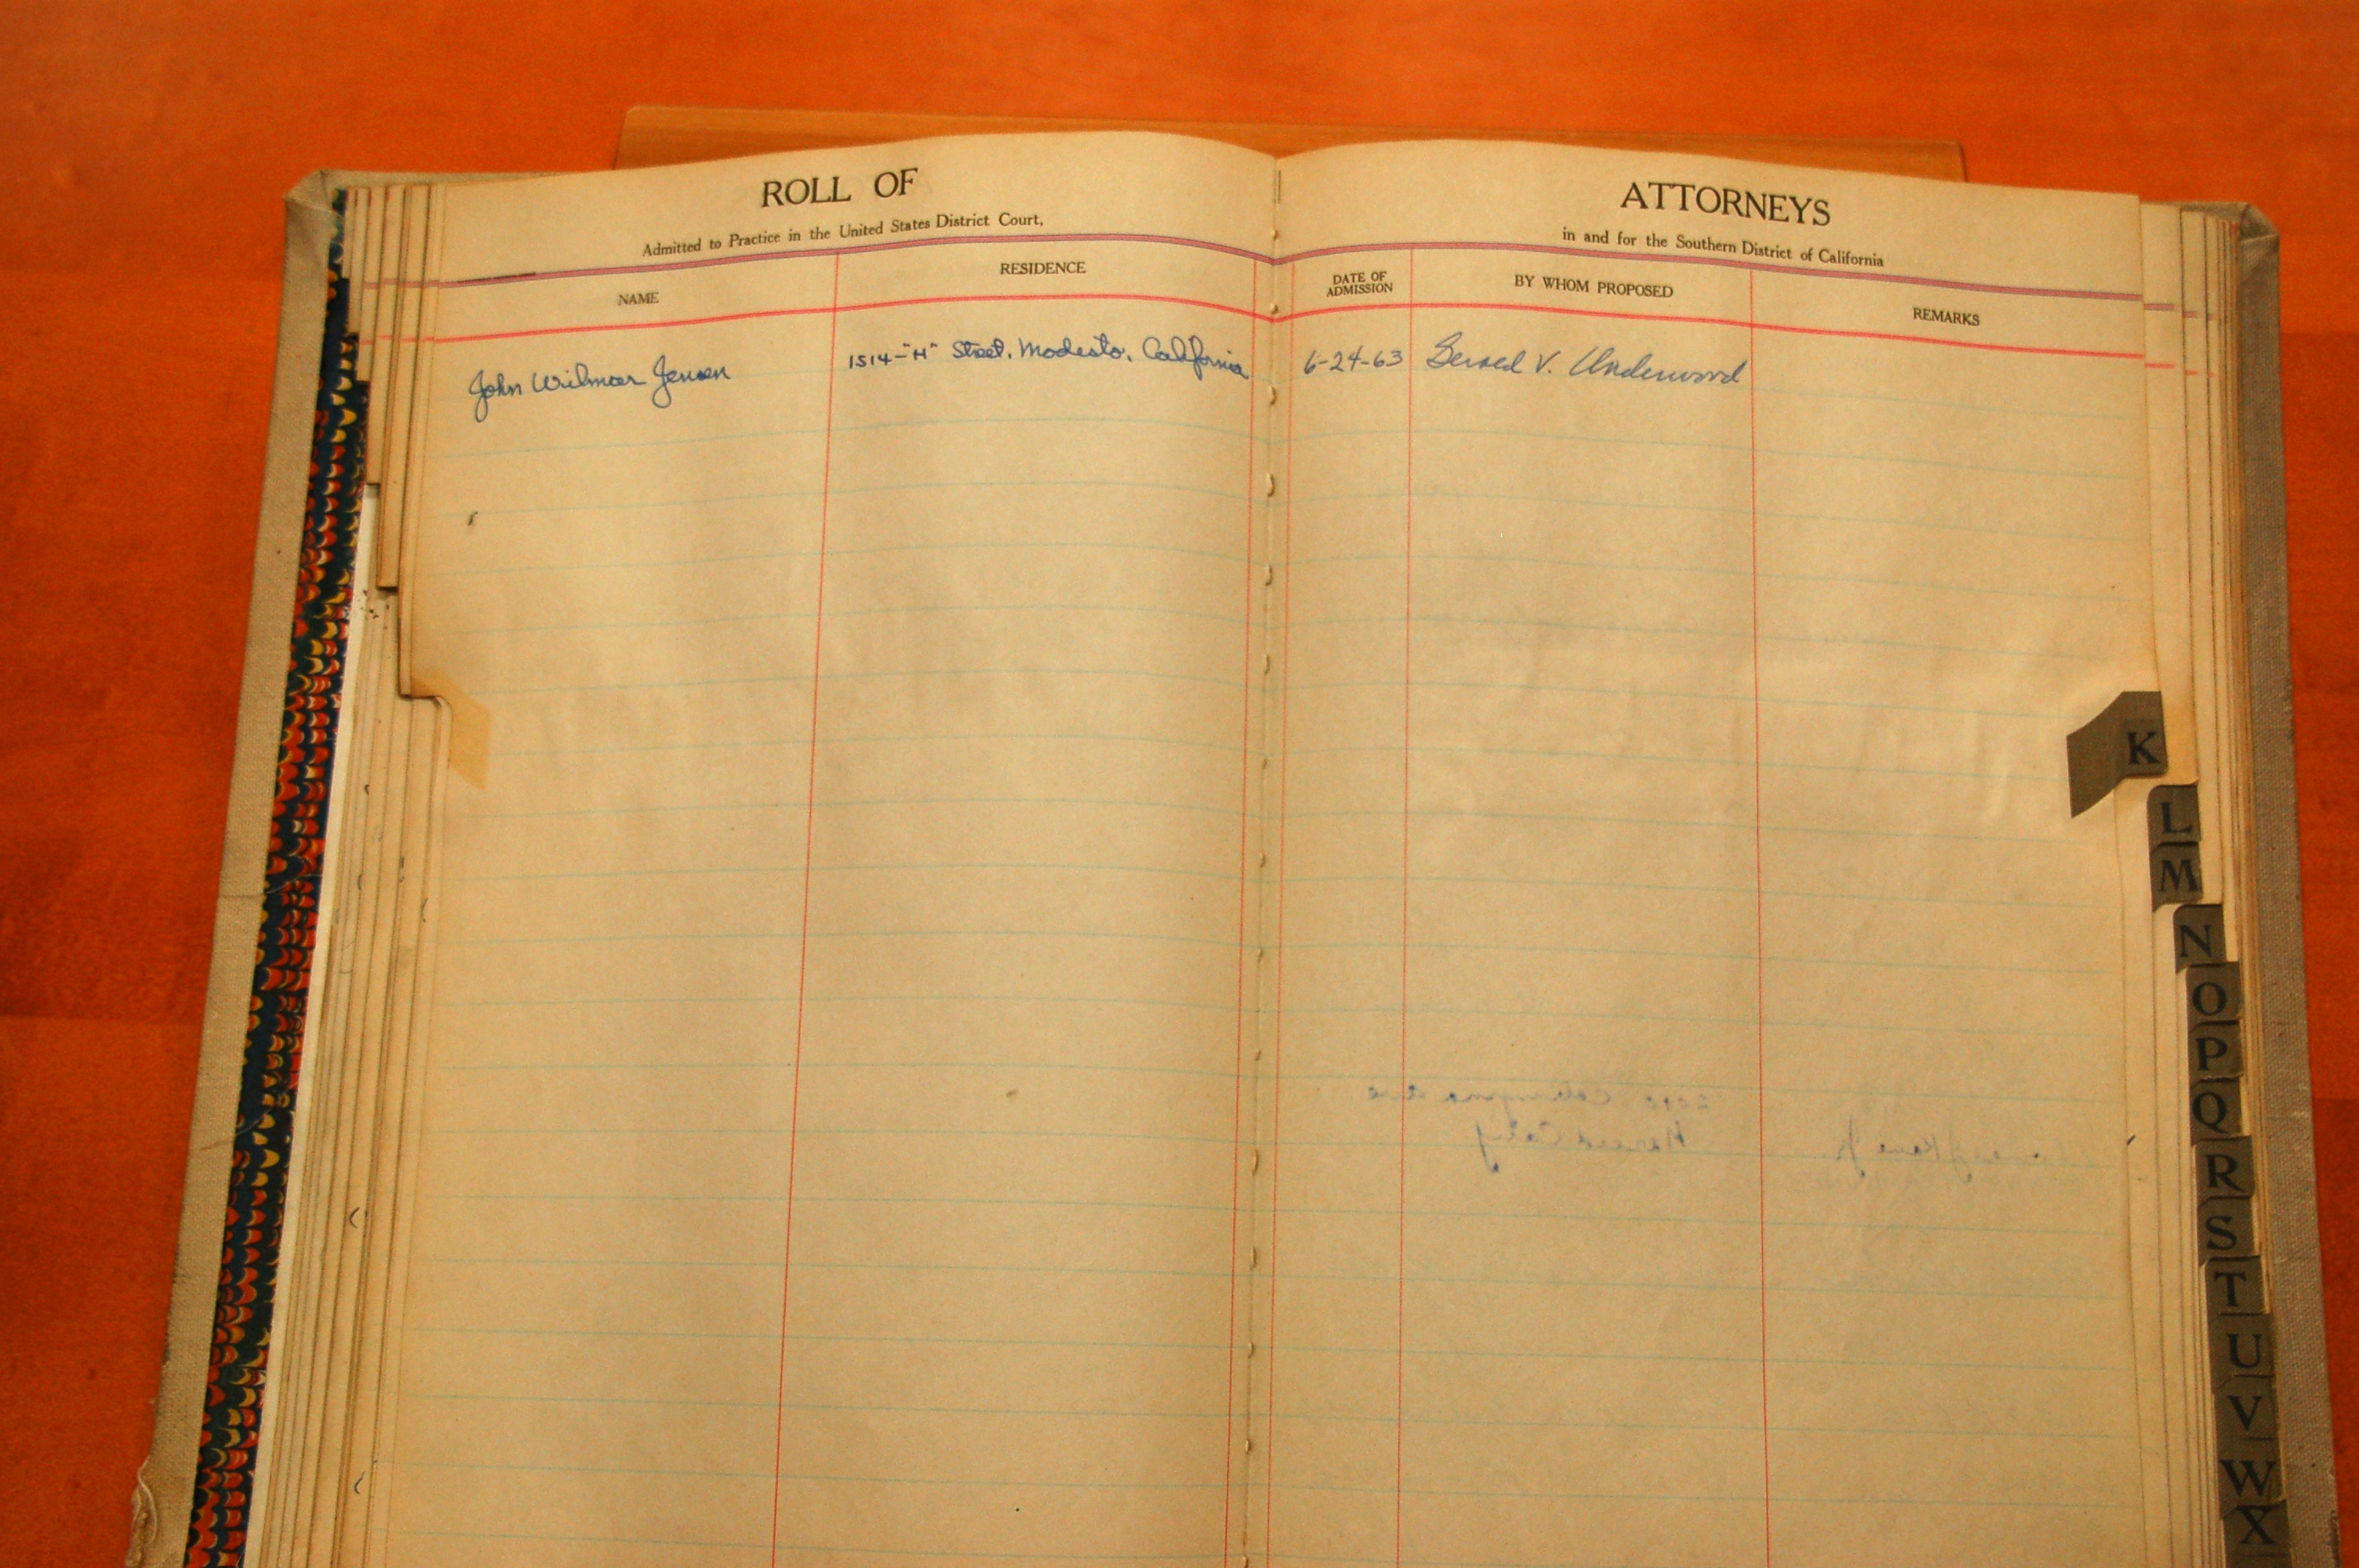 ROLL OF
Admitted to Practice in the United States District Court,
NAME
RESIDENCE
John Wilmar Jensen
1514-"H" Street, Modesto, California
ATTORNEYS
in and for the Southern District of California
DATE OF
ADMISSION
BY WHOM PROPOSED
REMARKS
6-24-63
V. Underwood
K
L
M
N
O
P
Q
R
S
T
U
V
W
X